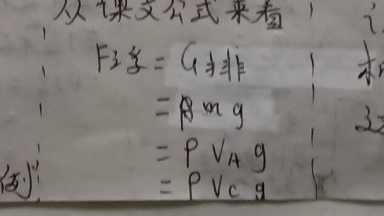 从课文公式来看
F浮 = G排
= m g
= ρ V_A g
= ρ V_C g
例